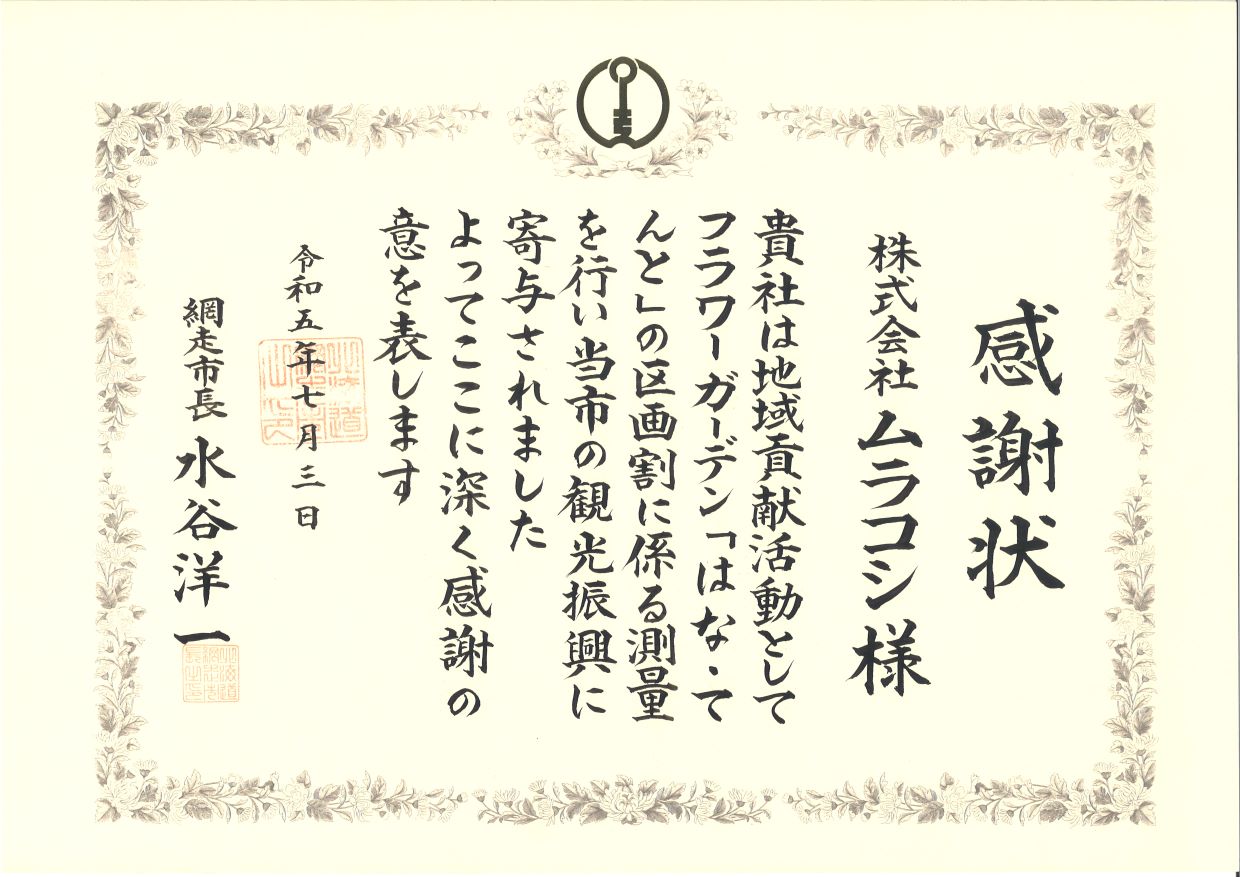 感謝状
株式会社ムラコシ様
貴社は地域貢献活動として
フラワーガーデン「はな・て
んと」の区画割に係る測量
を行い当市の観光振興に
寄与されました
よってここに深く感謝の
意を表します
令和五年七月三日
網走市長 水谷洋一